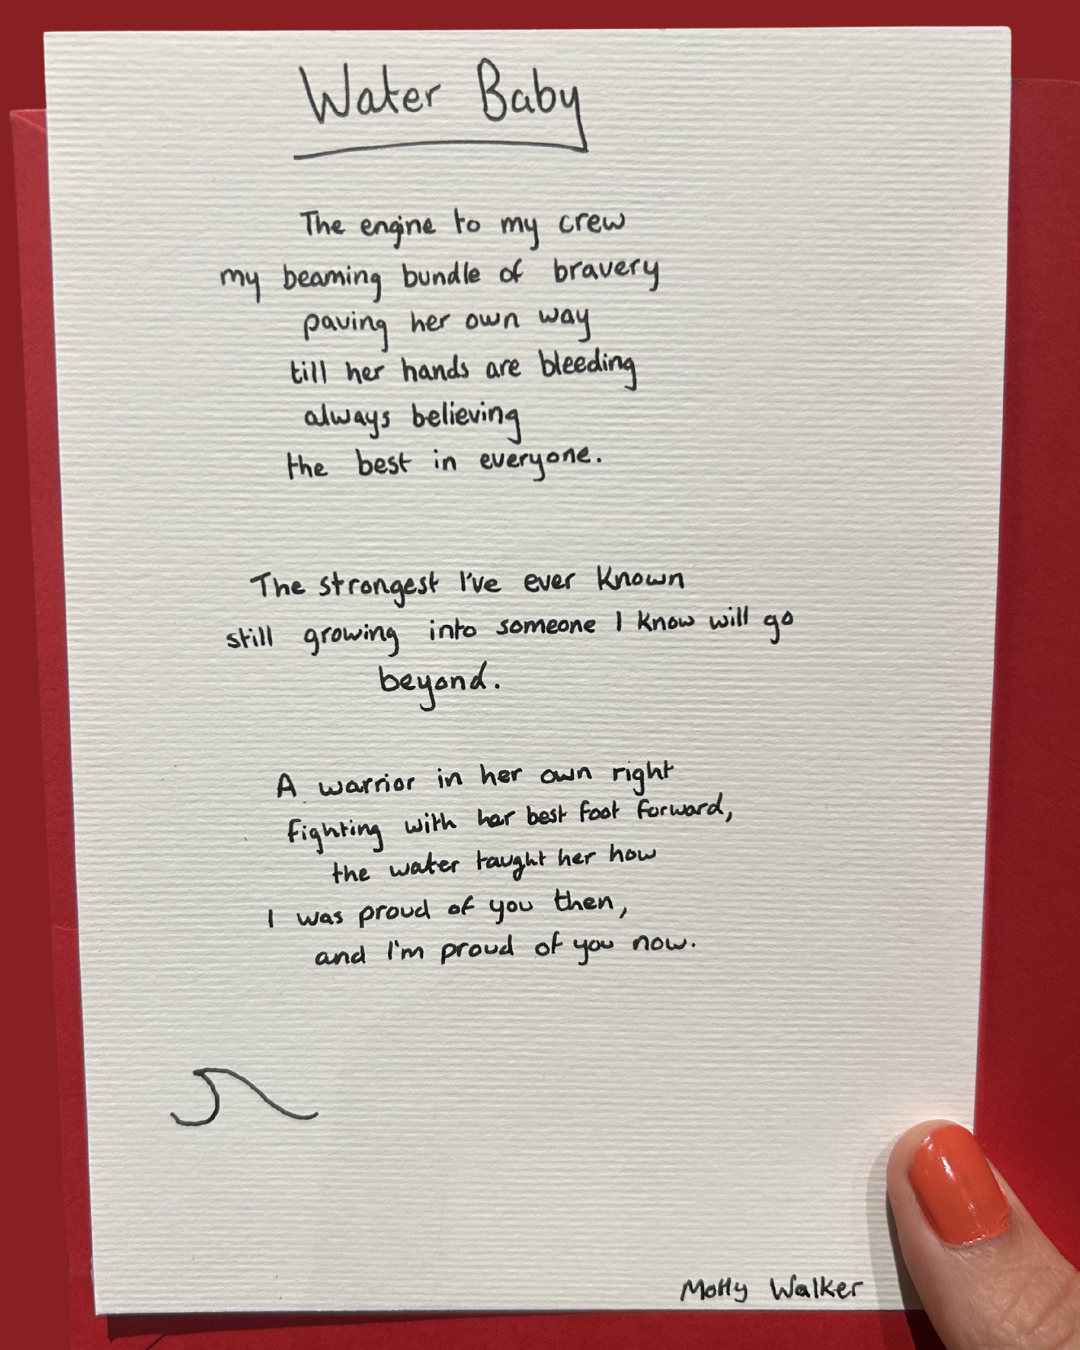 Water Baby
The engine to my crew
my beaming bundle of bravery
paving her own way
till her hands are bleeding
always believing
the best in everyone.
The strongest I've ever known
still growing into someone I know will go
beyond.
A warrior in her own right
fighting with her best foot forward,
the water taught her how
I was proud of you then,
and I'm proud of you now.
Molly Walker